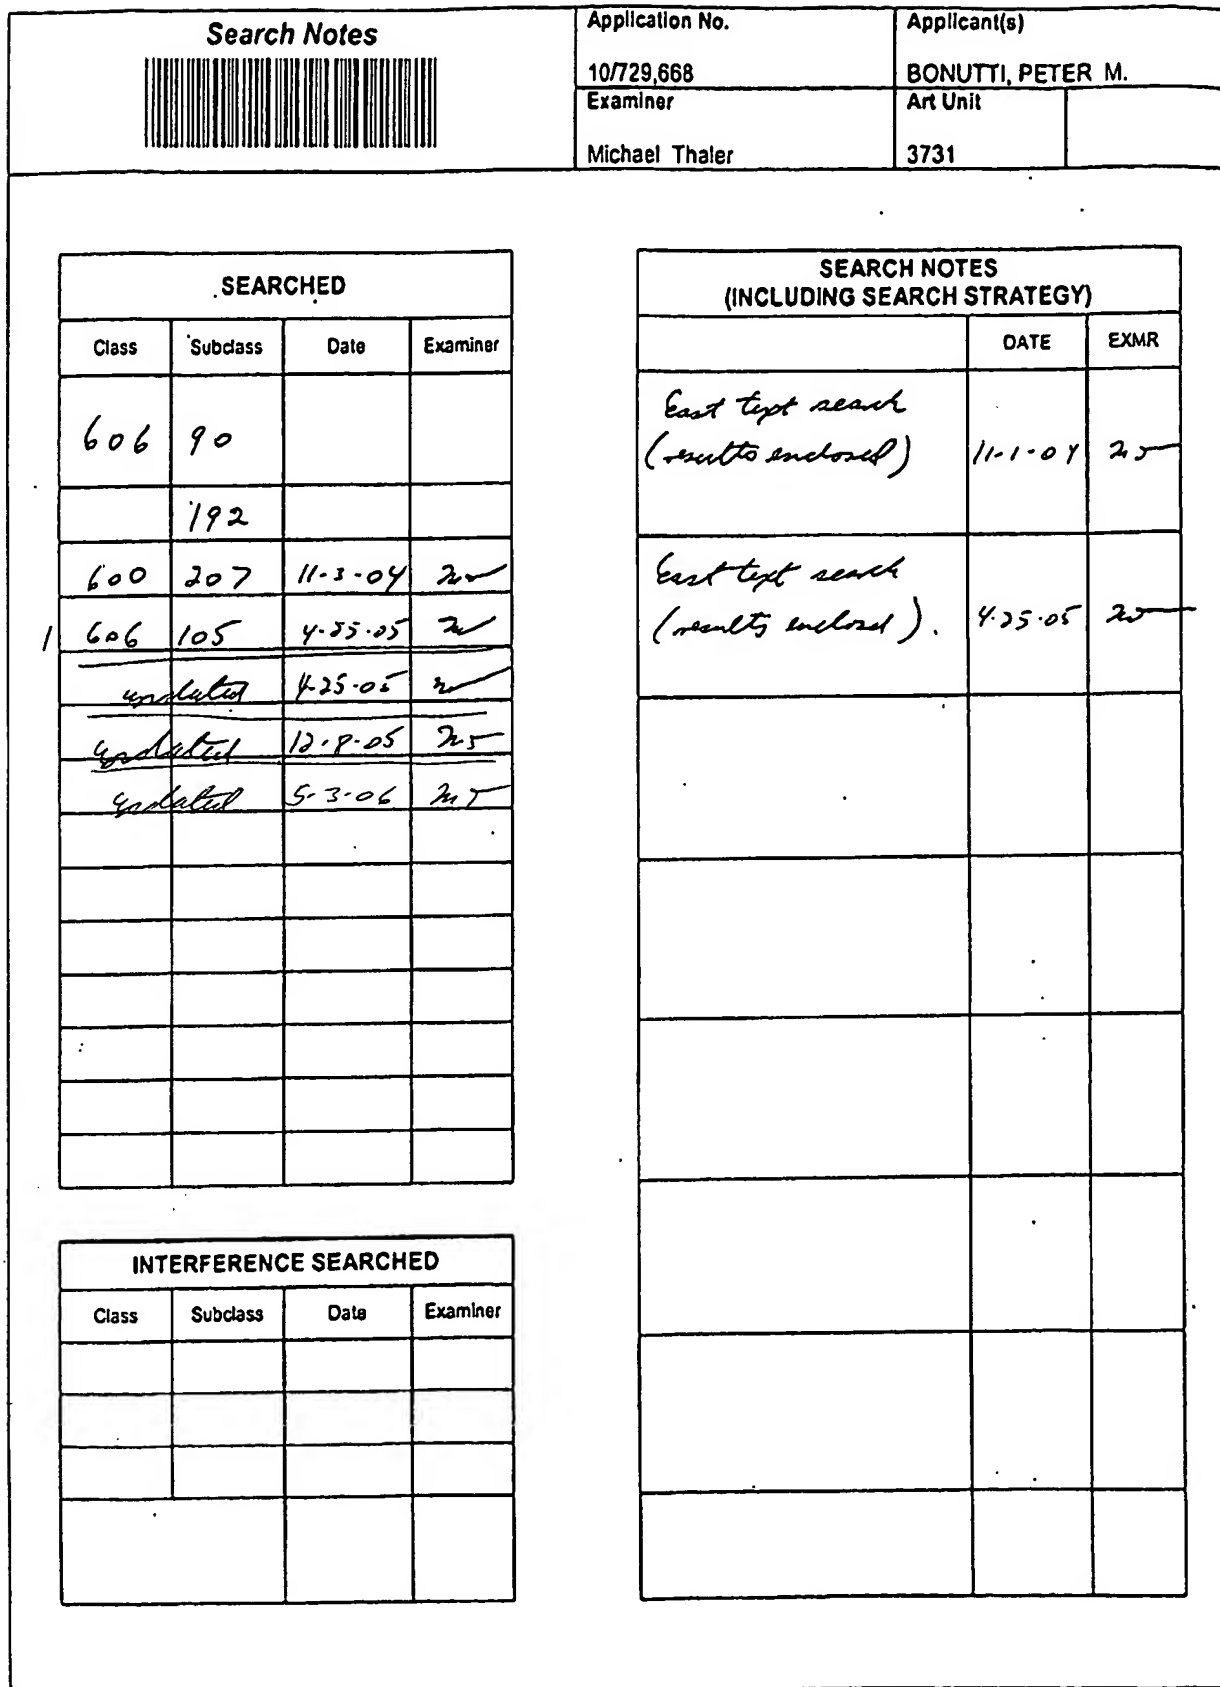 Search Notes
Application No.
10/729,668
Applicant(s)
BONUTTI, PETER M.
Examiner
Michael Thaler
Art Unit
3731
SEARCHED
Class Subclass Date Examiner
606 90
192
600 207 11-3-04
1 606 105 4-25-05
updated 4-25-05
updated 12-8-05 MT
updated 5-3-06 MT
INTERFERENCE SEARCHED
Class Subclass Date Examiner
SEARCH NOTES
(INCLUDING SEARCH STRATEGY)
DATE EXMR
East text search
(results enclosed) 11-1-04 MT
East text search
(results enclosed). 4-25-05 MT